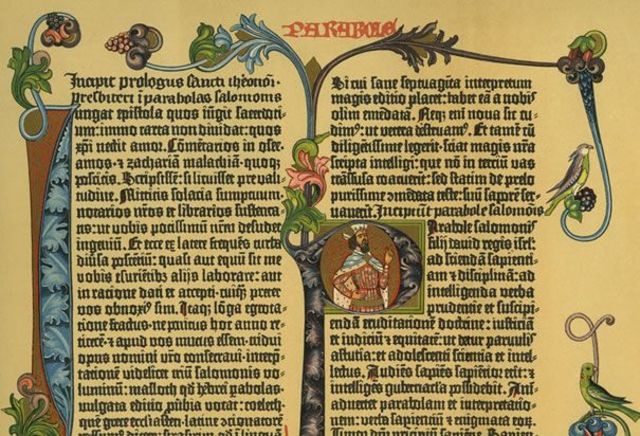 PARABOLE
Incipit prologus sancti iheronimi
presbiteri i parabolas salomonis
Iungat epistola quos iūgit sacerdoti-
um: immo carta non dividat: quos
xp̄i nectit amor. Cōmētarios in osee.
amos. & zachariam malachiam. quoqȝ
poscitis. Scripsissē: si licuisset pre vali-
tudine. Mittitis solacia sumptuum.
notarios nr̄os et librarios sustenta-
tis: ut vobis potissimum nr̄m desudet
ingeniū. Et ecce ex latere frequēs turba
diūsa poscētiū: quasi aut equū sit me
vobis esuriētibȝ alijs laborare: aut
in ratione dati et accepti. cuiqȝ preter
vos obnoxi⁹ sim. Itaqȝ lōga egrota-
tione fractus. ne penitus hoc anno re-
ticerē. & apud vos mutus essem. tridui
opus nomini vr̄o consecraui. interp̄-
tationē videlicet triū salomonis vo-
luminū: masloth qd̄ hebrei ꝑabolas.
vulgata editio ꝓūbia vocat: coeleth.
quē grece ecclesiasten. latine cōtionatorē
possum⁹ dicere: sirasirim. qd̄ ī linguā
Si cui sane septuagīta interpretum
magis editio placet: habet eā a nobis
olim emēdatā. Neqȝ enī nova sic cu-
dim⁹: ut vetera destruam⁹. Et tamē cū
diligētissime legerit. sciat magis nr̄a
scripta intelligi: que nō in terciū vas
trāsfusa coacuerīt: sed statim de prelo
purissime ɔmēdata teste: suū saporē ser-
vauerīt. Incipiūt parabole salomonis
Parabole salomonis
filij david regis isrl̄:
ad sciendā sapienti-
am & disciplinā: ad
intelligenda verba
prudentie et suscipi-
endā eruditationē doctrine: iusticiā
et iudiciū & equitatē: ut detur parvulis
astutia: et adolescenti sciencia et intel-
lectus. Audiēs sapiēs sapiētior erit: &
intelligēs gubernacla possidebit. Ani-
advertet parabolam et interpretatio-
nem: verba sapientiū & enigmata eoꝝ.
Timor dn̄i principiū sapiētie.